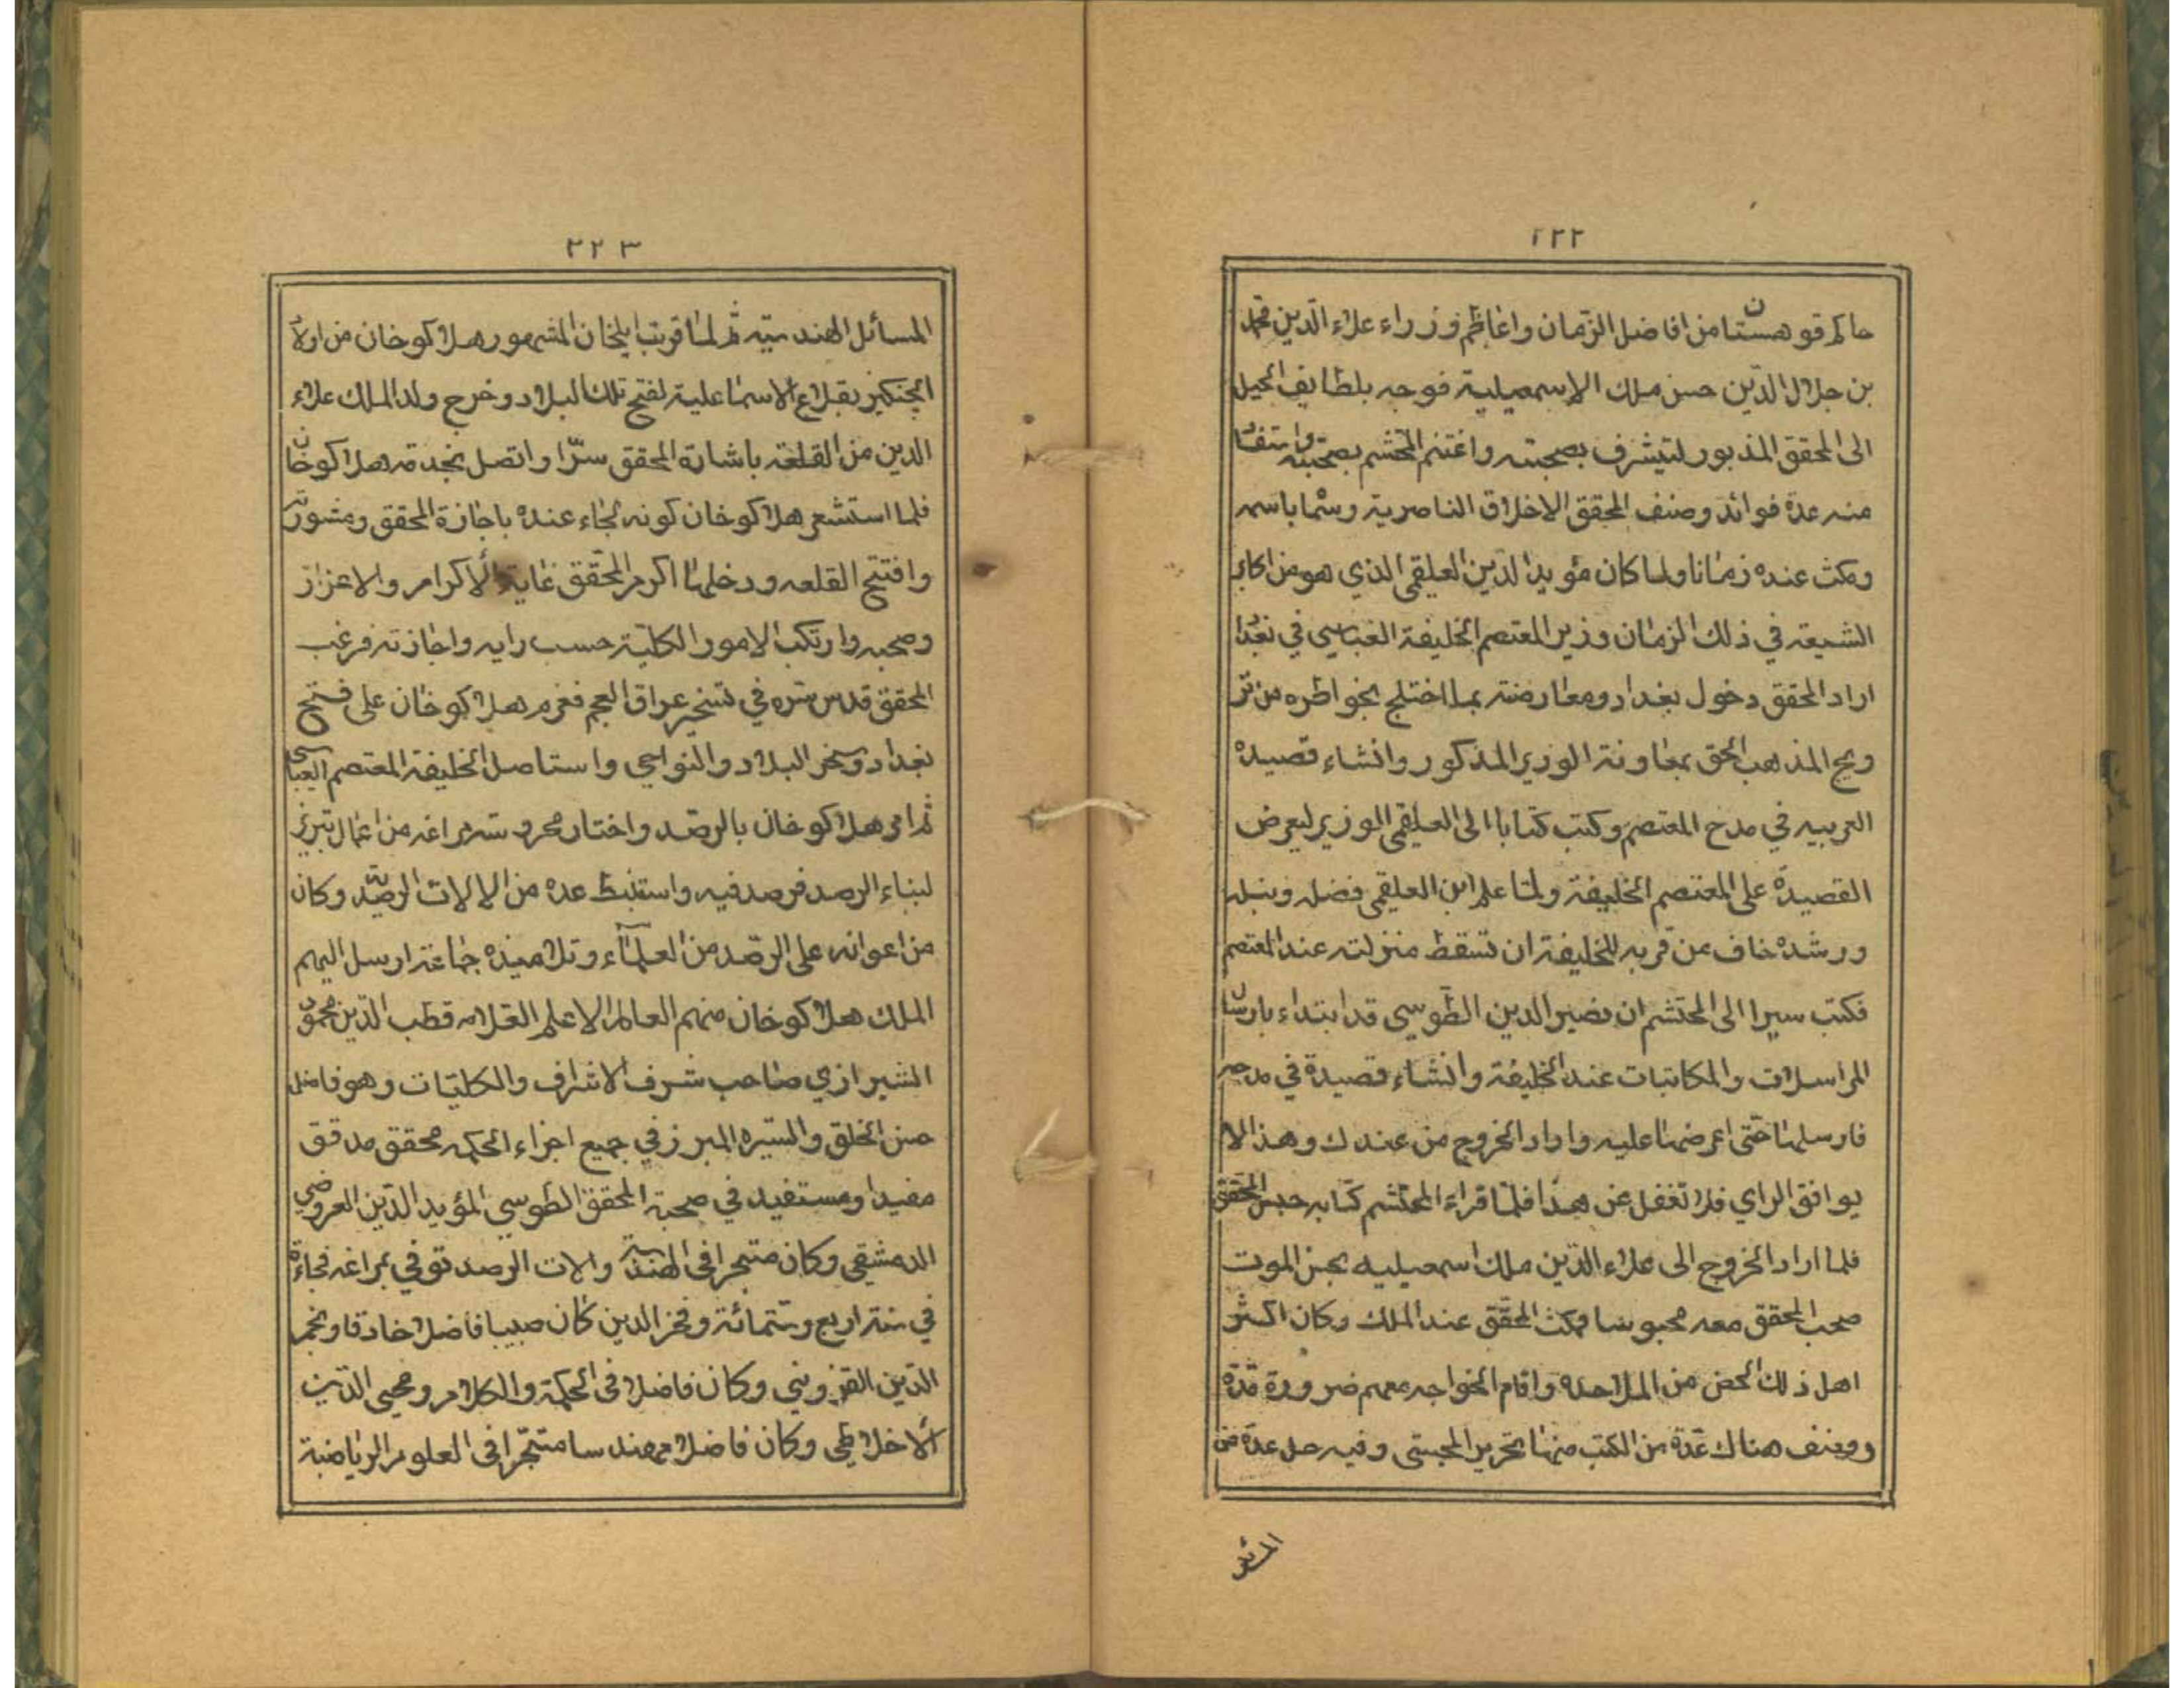 ٢٢٢
حاكم قوهستان من افاضل الزمان واعاظم وزراء علاء الدين محمد
بن جلال الدين حسن ملك الاسمعيلية فوجه بلطايف الحيل
الى المحقق المذبور ليتشرف بصحبته واغتنم المحتشم بصحبته واستفاد
منه عدة فوائد وصنف المحقق الاخلاق الناصرية وسمّا باسمه
ومكث عنده زمانا ولما كان مؤيد الدين العلقمي الذي هو من اكابر
الشيعة في ذلك الزمان وزير المعتصم الخليفة العباسي في بغداد
اراد المحقق دخول بغداد ومعارضته بما اختلج بخواطره من تر
ويج المذهب الحق بمعاونة الوزير المذكور وانشاء قصيدة
العربيه في مدح المعتصم وكتب كتابا الى العلقمي الوزير ليعرض
القصيدة على المعتصم الخليفة ولما علم ابن العلقمي فضله ونبله
ورشده خاف من قربه للخليفة ان تسقط منزلته عند المعتصم
فكتب سيرا الى المحتشم ان نصير الدين الطوسي قد ابتداء بارسال
المراسلات والمكاتبات عند الخليفة وانشاء قصيدة في مدحه
فارسلها حتى اعرضها عليه واراد الخروج من عندك وهذا لا
يوافق الراي فلا تغفل عن هذا فلما قراء المحتشم كتابه حبس المحقق
فلما اراد الخروج الى علاء الدين ملك اسمعيليه بحبس الموت
صحب المحقق معه محبوسا فمكث المحقق عند الملك وكان اكثر
اهل ذلك الحض من الملاحده واقام الخواجه معهم ضرورة مدة
وصنف هناك عدة من الكتب منها تحرير المجسبتى وفيه حل عدة من
المسائل
٢٢٣
المسائل الهندسية ثم لما قرب ايلخان المشهور هلاكو خان من اولاد
الچنكيز بقلاع الاسماعلية لفتح تلك البلاد وخرج ولد الملك علاء
الدين من القلعة باشارة المحقق سرّا واتصل بخدمة هلاكو خان
فلما استشعر هلاكو خان كونه لجاء عنده باجازة المحقق ومشورته
وافتتح القلعه ودخلها اكرم المحقق غاية الاكرام والاعزاز
وصحبه وارتكب الامور الكلية حسب رايه واجازته فرغب
المحقق قدس سره في تسخير عراق العجم فعزم هلاكو خان على فتح
بغداد وسخر البلاد والنواحي واستاصل الخليفة المعتصم العباسي
ثم امر هلاكو خان بالرصد واختار محروسه مراغه من اعمال تبريز
لبناء الرصد فرصد فيه واستنبط عده من الالالات الرصدية وكان
من اعوانه على الرصد من العلماء وتلاميذه جماعة ارسل اليهم
الملك هلاكو خان منهم العالم الاعلم العلامه قطب الدين محمود
الشيرازي صاحب شرف الاشراف والكليات وهو فاضل
حسن الخلق والسيره المبرز في جميع اجزاء الحكمه محقق مدقق
مفيدا ومستفيد في صحبة المحقق الطوسي المؤيد الدين العروضي
الدمشقي وكان متبحرا في الهندسة والات الرصد توفي بمراغه فجاءة
في سنة اربع وستمائة وفخر الدين كان طبيبا فاضلا حادقا ونجم
الدين القزويني وكان فاضلا في الحكمة والكلام ومحيى الدين
الاخلاطي وكان فاضلا مهندسا متبحرا في العلوم الرياضية